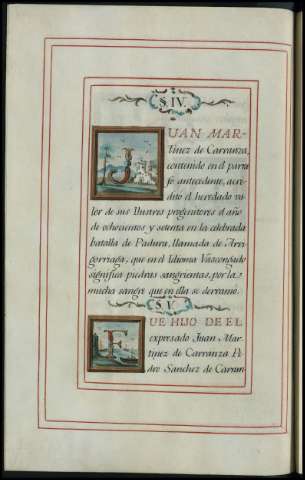 S. IV.
JUAN MAR-
tinez de Carranza,
contenido en el parra
fo antecedente, acre-
dito el heredado va-
lor de sus Ilustres progenitores el año
de ochocientos y setenta en la celebrada
batalla de Padura, llamada de Arri-
gorriaga, que en el Idioma Vascongado
significa piedras sangrientas, por la
mucha sangre que en ella se derramó.
S. V.
FUE HIJO DE EL
expresado Juan Mar-
tinez de Carranza Pe-
dro Sanchez de Carran-